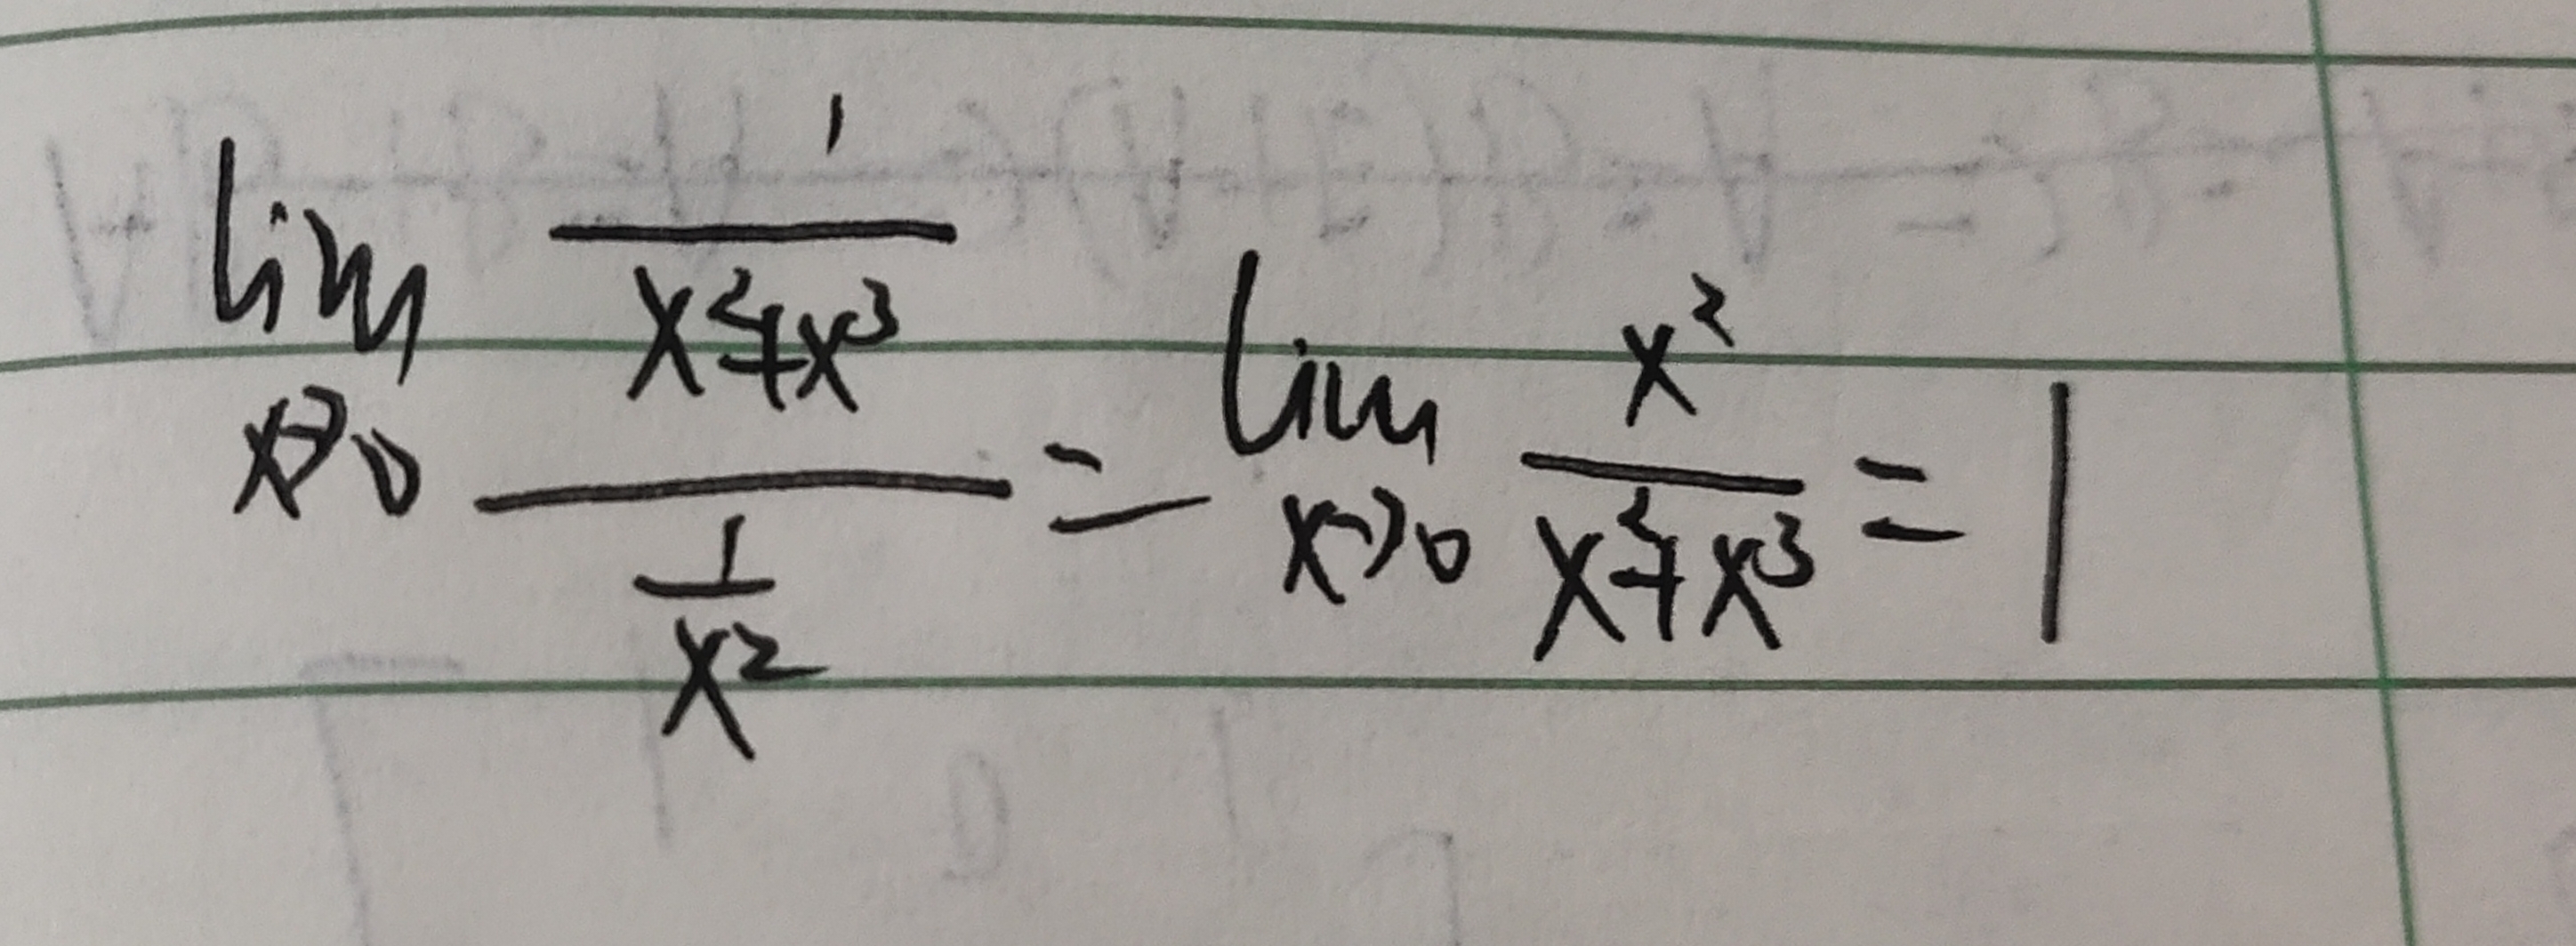 lim x→0 (1/(x²+x³))/(1/x²) = lim x→0 x²/(x²+x³) = 1